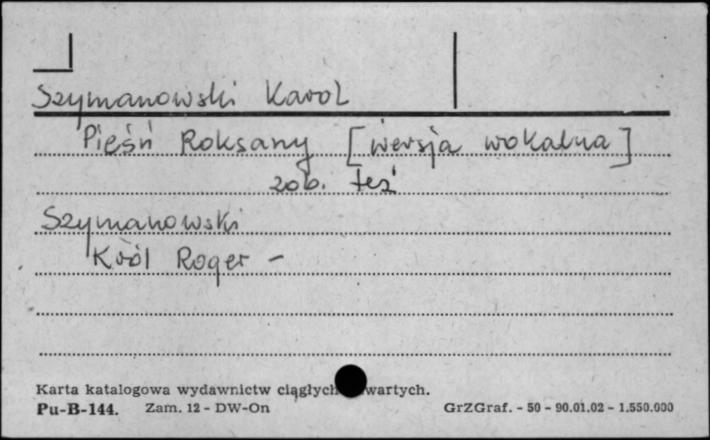 Szymanowski Karol
Pieśń Roksany [wersja wokalna]
zob. też
Szymanowski
Król Roger -
Karta katalogowa wydawnictw ciągłych wartych.
Pu-B-144. Zam. 12 - DW-On GrZGraf. - 50 - 90.01.02 - 1.550.000